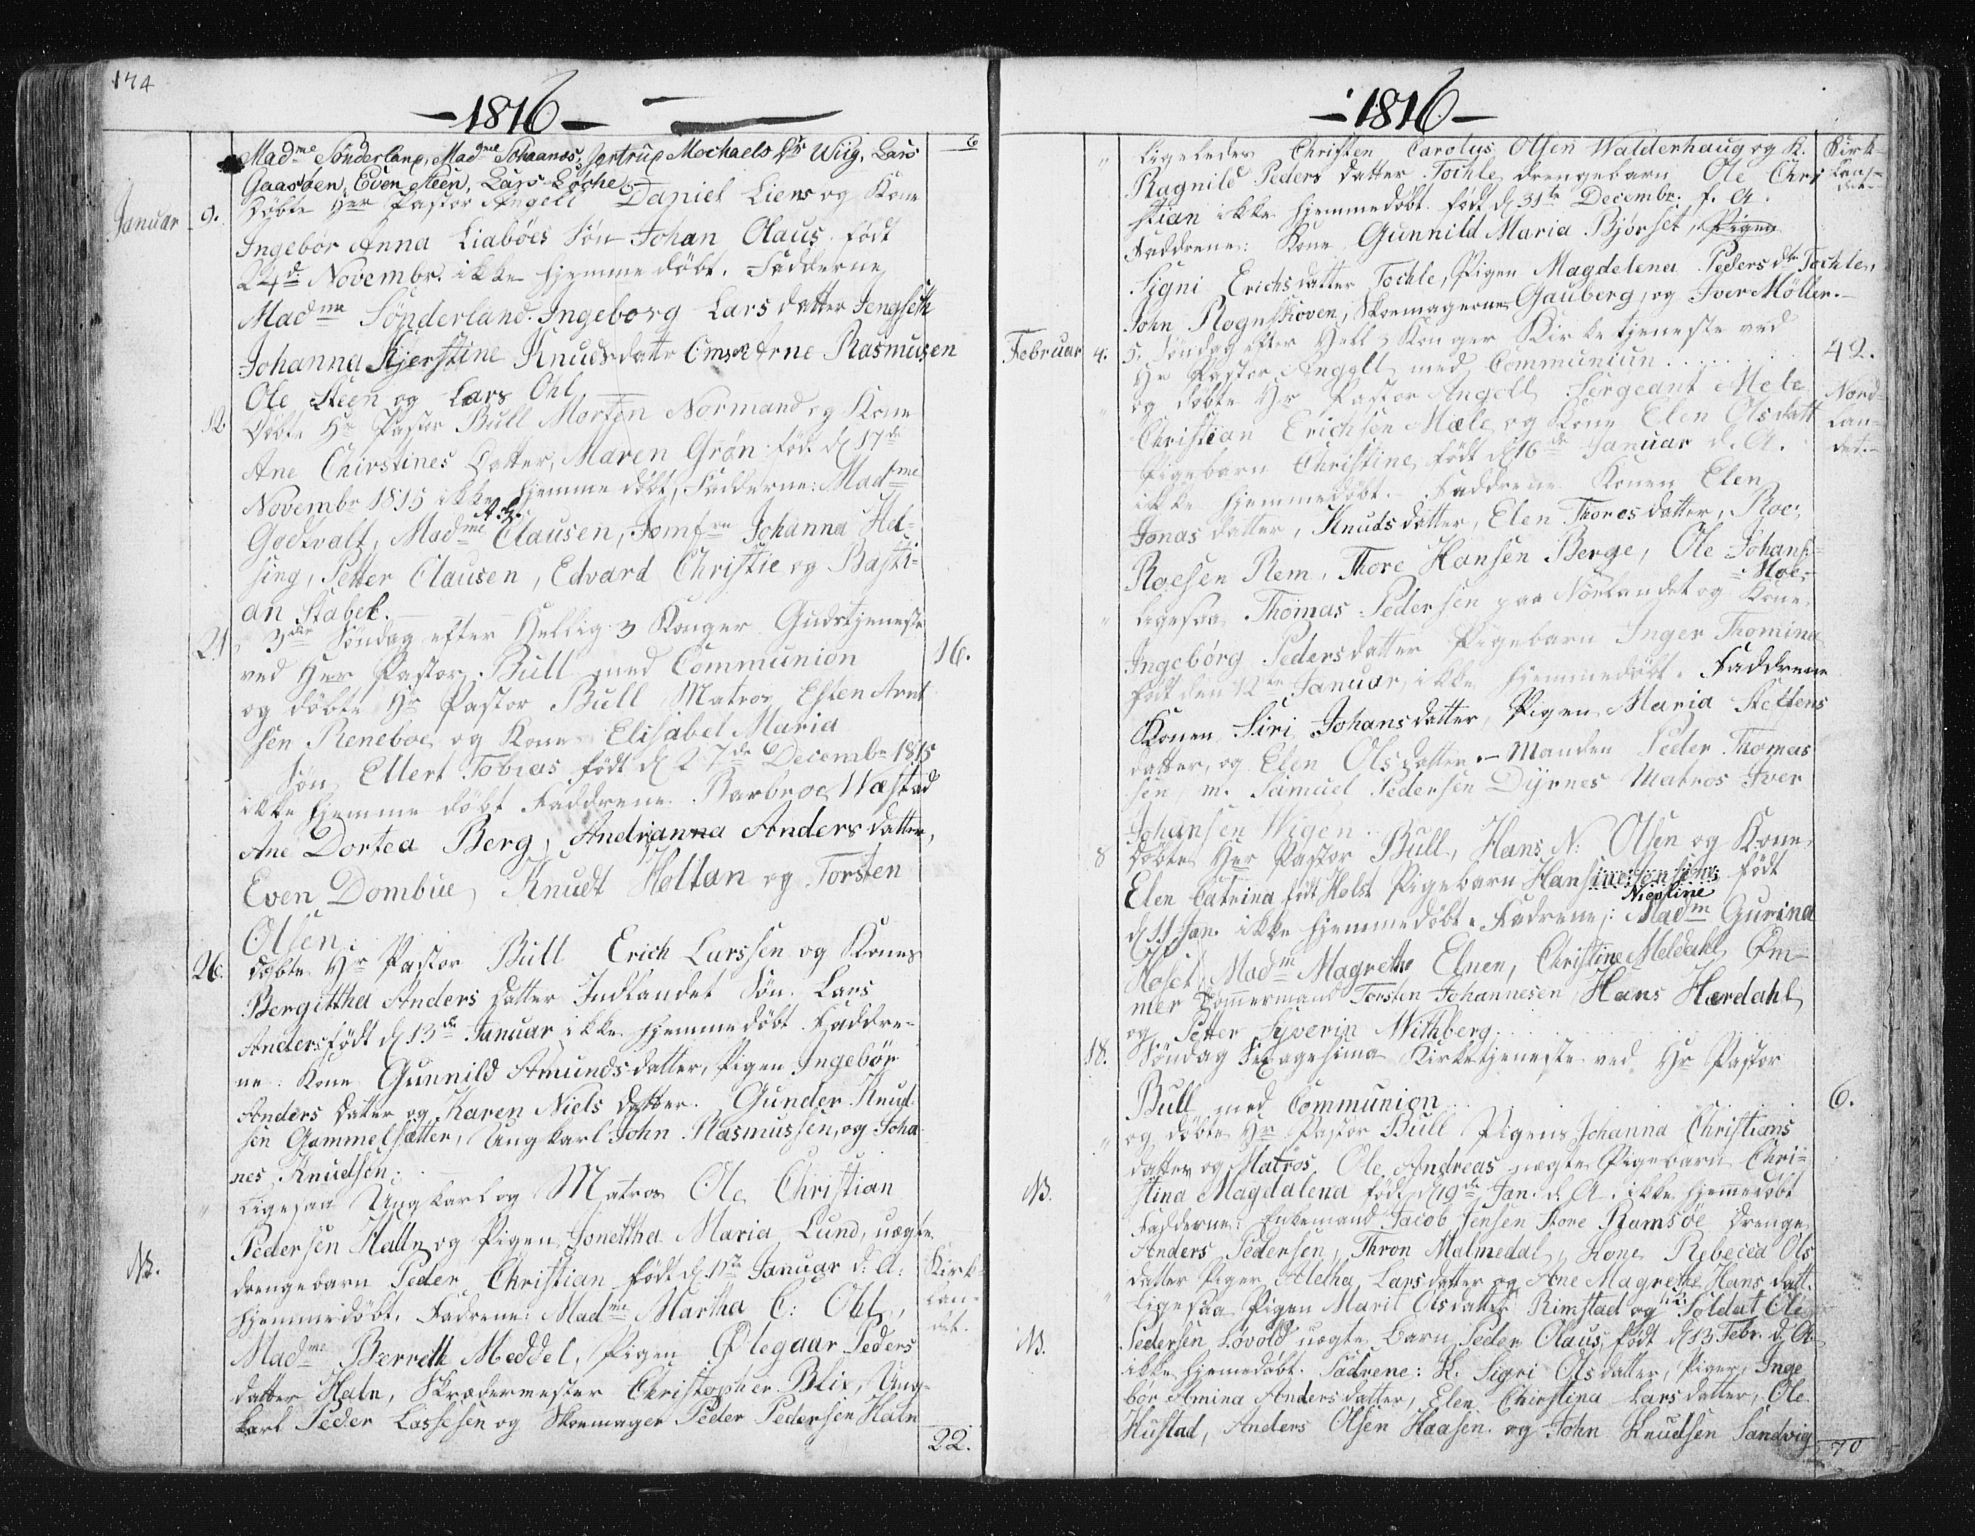 174
-1816-
Madme Sönderland, Madme Johannes, Jertrud Mechaels Dr Wiig, Lars 6
Gaasöen, Even Steen, Lars Löche.
Januar 9. Döbte Her Pastor Angell Daniel Liens og Kone
Ingebor Anna Liaböes Sön Johan Olaus. födt
24d Novembr. ikke hjemme döbt. Fadderne
Madme Sönderland. Ingeborg Lars datter Jengseth
Johanna Kjerstine Knudsdatr Arne Rasmusen
Ole Steen og Lars Ohl
12 Döbte Hr Pastor Bull Morten Normand og Kone
Ane Chirstines Datter, Maren Grön föd. d 17de
Novembr 1815 ikke hjemme döbt, Fadderne: Madme
Godtvalt, Madme A. L. Clausen, Jomfru Johanna Hel-
sing, Petter Clausen, Edvard Christie og Basti-
an Stabel.
21 3die Söndag efter Hellig 3 Konger Gudstjeneste
ved Her Pastor Bull med Communion 16.
og döbte Hr Pastor Bull Matros Esten Arnt
sen Reneboe og Kone Elisabet Maria
Sön Ellert Tobias födt d 27de Decembr 1815
ikke hjemme döbt Faddrene Barbroe Wæstad
Ane Dortea Berg, Andrianna Anders datter,
Even Dombue, Knudt Holtan og Torsten
Olsen.
26. döbte Hr Pastor Bull Erich Larssen og Kones
Bergittha Anders datter Indlandet Sön Lars
Anders födt d 13de Januar ikke hjemmedöbt. Faddre-
ne: Kone Gunnild Amunds datter, Pigen Ingebör
Anders Datter og Karen Niels datter. Gunder Knud-
sen Gammelsætter, Ung karl John Rasmussen, og Joha-
nes Knudsen.
" Ligesaa Ung karl og Matros Ole Christian
Pedersen Halln og Pigen Jonettha Maria Lund, uægte
NB. drengebarn Peder Christian födt d 1te Januar d: A: Kirk-
hjemmedöbt. Fadrene: Madme Martha C: Ohl, lan-
Madme Berreth Meddel, Pigen Olegaar Peders det.
datter Haln, Skrædermester Christopher Blix, Ung-
karl Peder Lassesen og Skoemager Peder Pedersen Haln
22.
-1816-
" Ligeledes Christen Carolus Olsen Walderhaug og K. Kirk-
Ragnild Peders datter Tochle drengebarn Ole Chri lan-
stian ikke hjemmedöbt födt d 31te Decembr. f. A. det
Faddrene: Kone Gunnild Maria Bjørset, Pigen
Signi Erichsdatter Tochle, Pigen Magdelena Peders dtr Tochle,
John Rognskoven, Skoemagerne Gauberg, og Iver Möller.-
Februar 4. 5. Söndag efter Hell 3 Konger Kirketjeneste ved
Hr Pastor Angell med Communiun 42.
" og döbte Hr Pastor Angell Sergeant Mele Nord-
Christian Erichsen Mæle og Kone Elen Olsdatt lan-
Pigebarn Christine födt d 16de Januar d. A. det.
ikke hjemmedöbt. Faddrene Konen Elen
Jonas datter, Knuds datter, Elen Thores datter, Roe
Roesen Rem, Thore Hansen Berge, Ole Johans-
" ligesaa Thomas Pedersen paa Nörlandet og Kone
Ingebörg Peders datter Pigebarn Inger Thomina
födt den 12te Januar, ikke hjemmedöbt. Faddrene
Konen Siri Johans datter, Pigen Maria Stettens
datter, og Elen Ols datter.- Manden Peder Thomas
sen m. Samuel Pedersen Dyrnes Matros Iver
Johansen Wigen.
8 Döbte Her Pastor Bull, Hans N: Olsen og Kone
Elen Catrina födt Holst Pigebarn Hansine Nicoline födt
d 11 Jan. ikke hjemmedöbt. Fadrene: Madm Gurina
Holset, Madm Magrethe Elnen, Christine Meldahl, Töm-
mer Tömmermand Torsten Johannesen, Hans Hærdahl
og Petter Syverin Withberg.
18. Söndag Sexagesima Kirketjeneste ved Hr Pastor
Bull med Communion 6.
" og döbte Hr Pastor Bull Pigens Johanna Christians
datter og Matros Ole Andreas uægte Pigebarn Chri-
NB. stina Magdalena födt d 19de Jan. d. A. ikke hjemmedöbt
Fadderne: Enkemand Jacob Jensen Store Ramsöe drenge
Anders Pedersen, Thron Malmedal, Kone Rebecca Ols
datter Piger Aletha Lars datter og Ane Magrethe Hans datt.
" Ligesaa Pigen Marit Olsdatter Rimstad og Soldat Ole
NB. Pedersen Lövold uægte Barn Peder Olaus, födt d 13 Febr. d. A.
ikke hjemedöbt. Fadrene: K. Sigri Olsdatter, Piger, Inge
bor Amina Anders datter, Elen Chirstina Lars datter, Ole
Hustad, Anders Olsen Haasen. og John Knudsen Sandvig
70